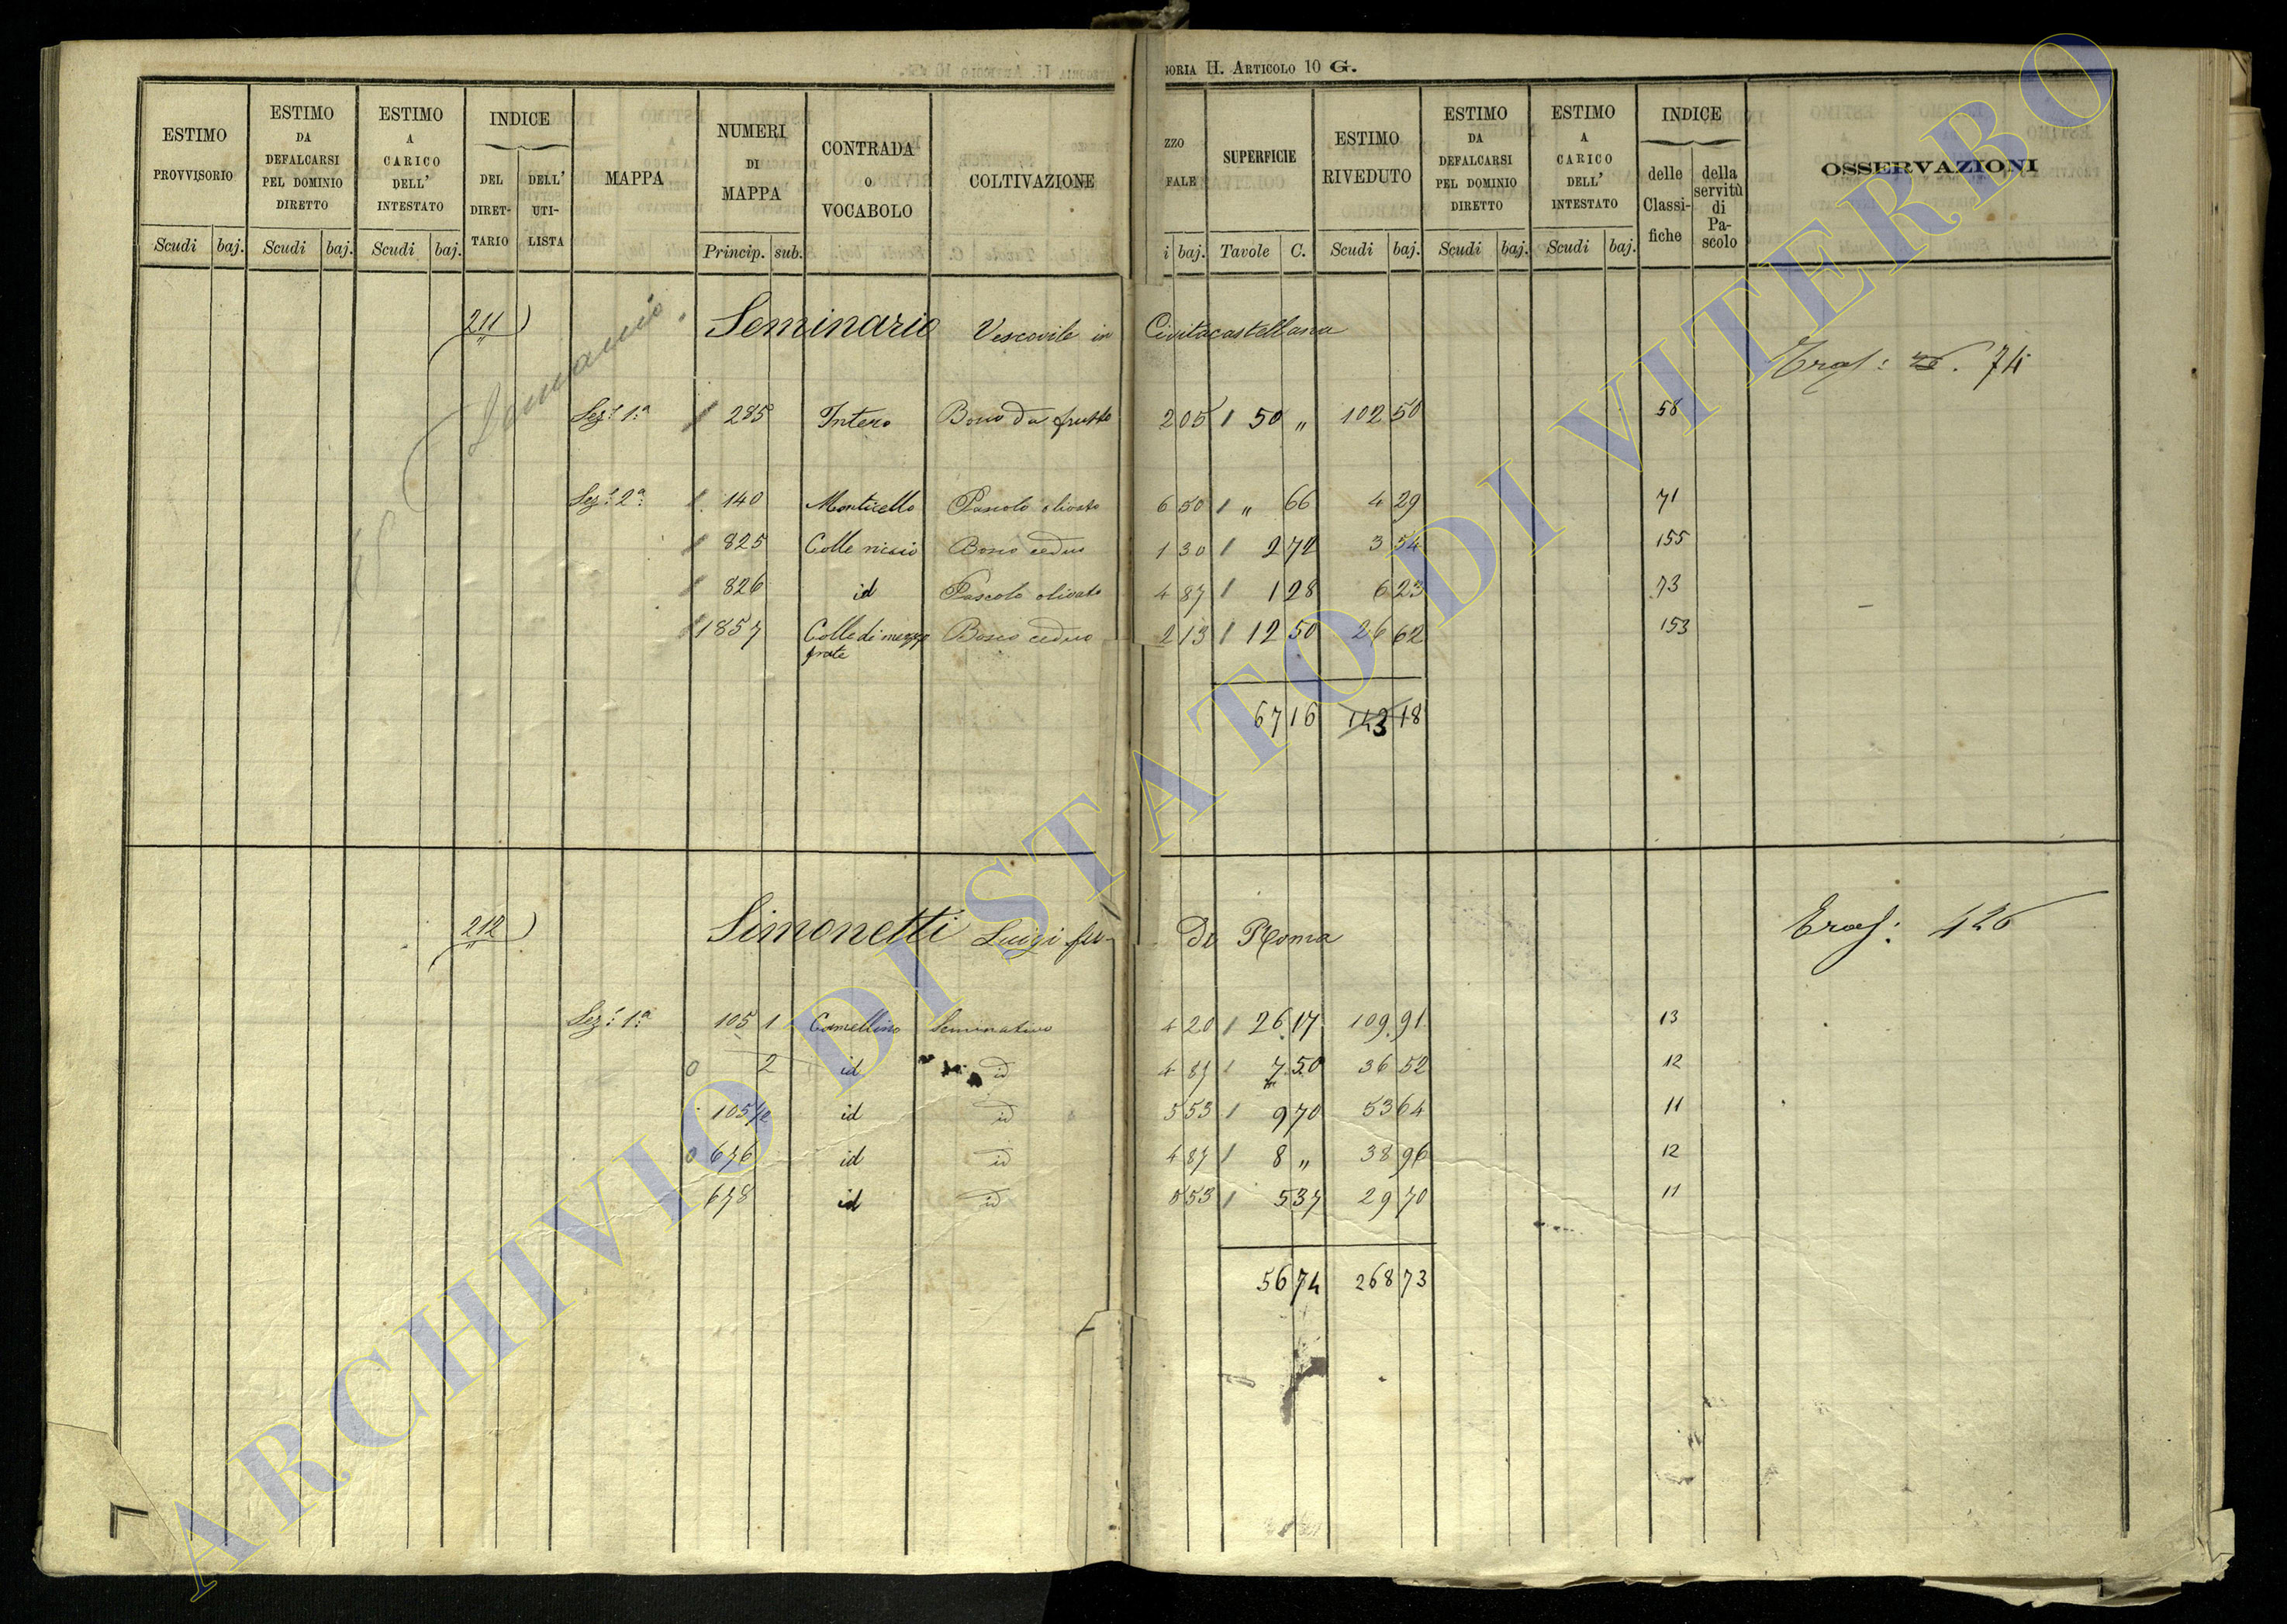 GORIA II. ARTICOLO 10 G.
ESTIMO PROVVISORIO Scudi baj.
ESTIMO DA DEFALCARSI PEL DOMINIO DIRETTO Scudi baj.
ESTIMO A CARICO DELL' INTESTATO Scudi baj.
INDICE DEL DIRET-TARIO DELL' UTI-LISTA
MAPPA
NUMERI DI MAPPA Princip. sub.
CONTRADA O VOCABOLO
COLTIVAZIONE
ZZO FALE i baj.
SUPERFICIE Tavole C.
ESTIMO RIVEDUTO Scudi baj.
ESTIMO DA DEFALCARSI PEL DOMINIO DIRETTO Scudi baj.
ESTIMO A CARICO DELL' INTESTATO Scudi baj.
INDICE delle Classi-fiche della servitù di Pa-scolo
OSSERVAZIONI
211 Seminario Vescovile in Civitacastellana
74
Sez.e 1.a 285 Intero Bosco da frutto 2 05 50 " 102 50 58
Sez.e 2.a 140 Monticello Pascolo olivato 6 50 " 66 4 29 71
825 Colle Bosco ceduo 1 30 2 72 3 54 155
826 id Pascolo olivato 4 87 1 28 6 23 73
1857 Colle di mezzo Bosco ceduo 2 13 12 50 26 62 153
frate
67 16 143 18
212 Simonetti Luigi fu Di Roma
426
Sez.e 1.a 105 1 Camellino Seminativo 4 20 26 17 109 91 13
2 id id 4 87 7 50 36 52 12
105/2 id id 5 53 9 70 53 64 11
676 id id 4 87 8 " 38 96 12
678 id id 5 53 5 37 29 70 11
56 74 268 73
ARCHIVIO DI STATO DI VITERBO